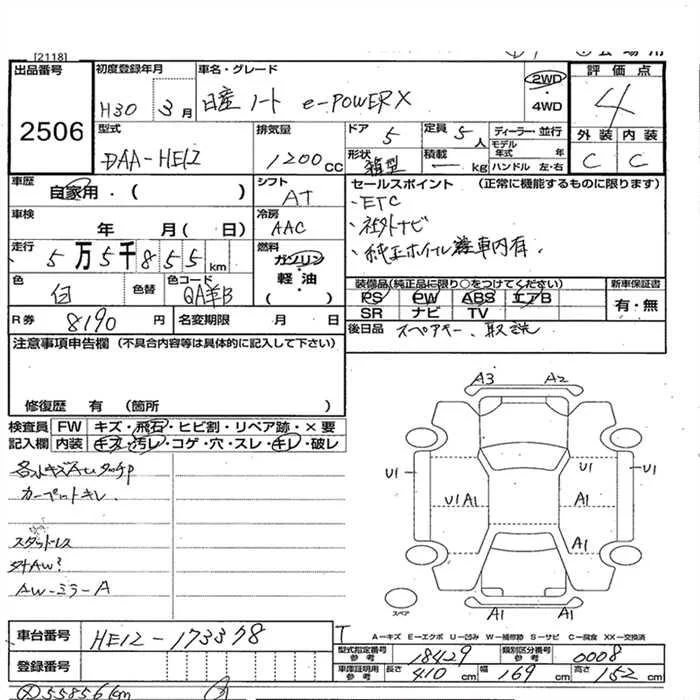 [2118]
出品番号
2506
初度登録年月
H30 3月
車名・グレード
日産 ノート e-POWER X
2WD
・
4WD
評価点
4
型式
DAA-HE12
排気量
1200cc
ドア 5
定員 5人
形状 箱型
積載 ー kg
ディーラー・並行
モデル年式 年
ハンドル 左・右
外装 内装
C C
車歴
自家用・( )
シフト
AT
車検
年 月( 日)
冷房
AAC
走行
5万5千855km
燃料
ガソリン
・
軽油
( )
色
白
色替
色コード
QAB
セールスポイント (正常に機能するものに限ります)
・ETC
・社外ナビ
・純正ホイル 車内有.
装備品(純正品に限り○をつけてください)
PS PW ABS エアB
SR ナビ TV
新車保証書
有・無
R券 8190円
名変期限 月 日
後日品 スペアキー、取説
注意事項申告欄 (不具合内容等は具体的に記入して下さい)
修復歴 有 (箇所 )
検査員記入欄
FW キズ・飛石・ヒビ割・リペア跡・×要
内装 キズ・汚レ・コゲ・穴・スレ・キレ・破レ
カーペットキレ.
スタッドレス
AW-ミラ-A
A3 A2
U1 U1 U1
U1 A1 A1
A1
A1 A1
スペア
車台番号 HE12-173378
登録番号
T
A-キズ E-エクボ U-凹み W-補修跡 S-サビ C-腐食 XX-交換済
型式指定番号 参考 18429
類別区分番号 参考 0008
車庫証明用 参考 長さ 410cm 幅 169cm 高さ 152cm
55856km